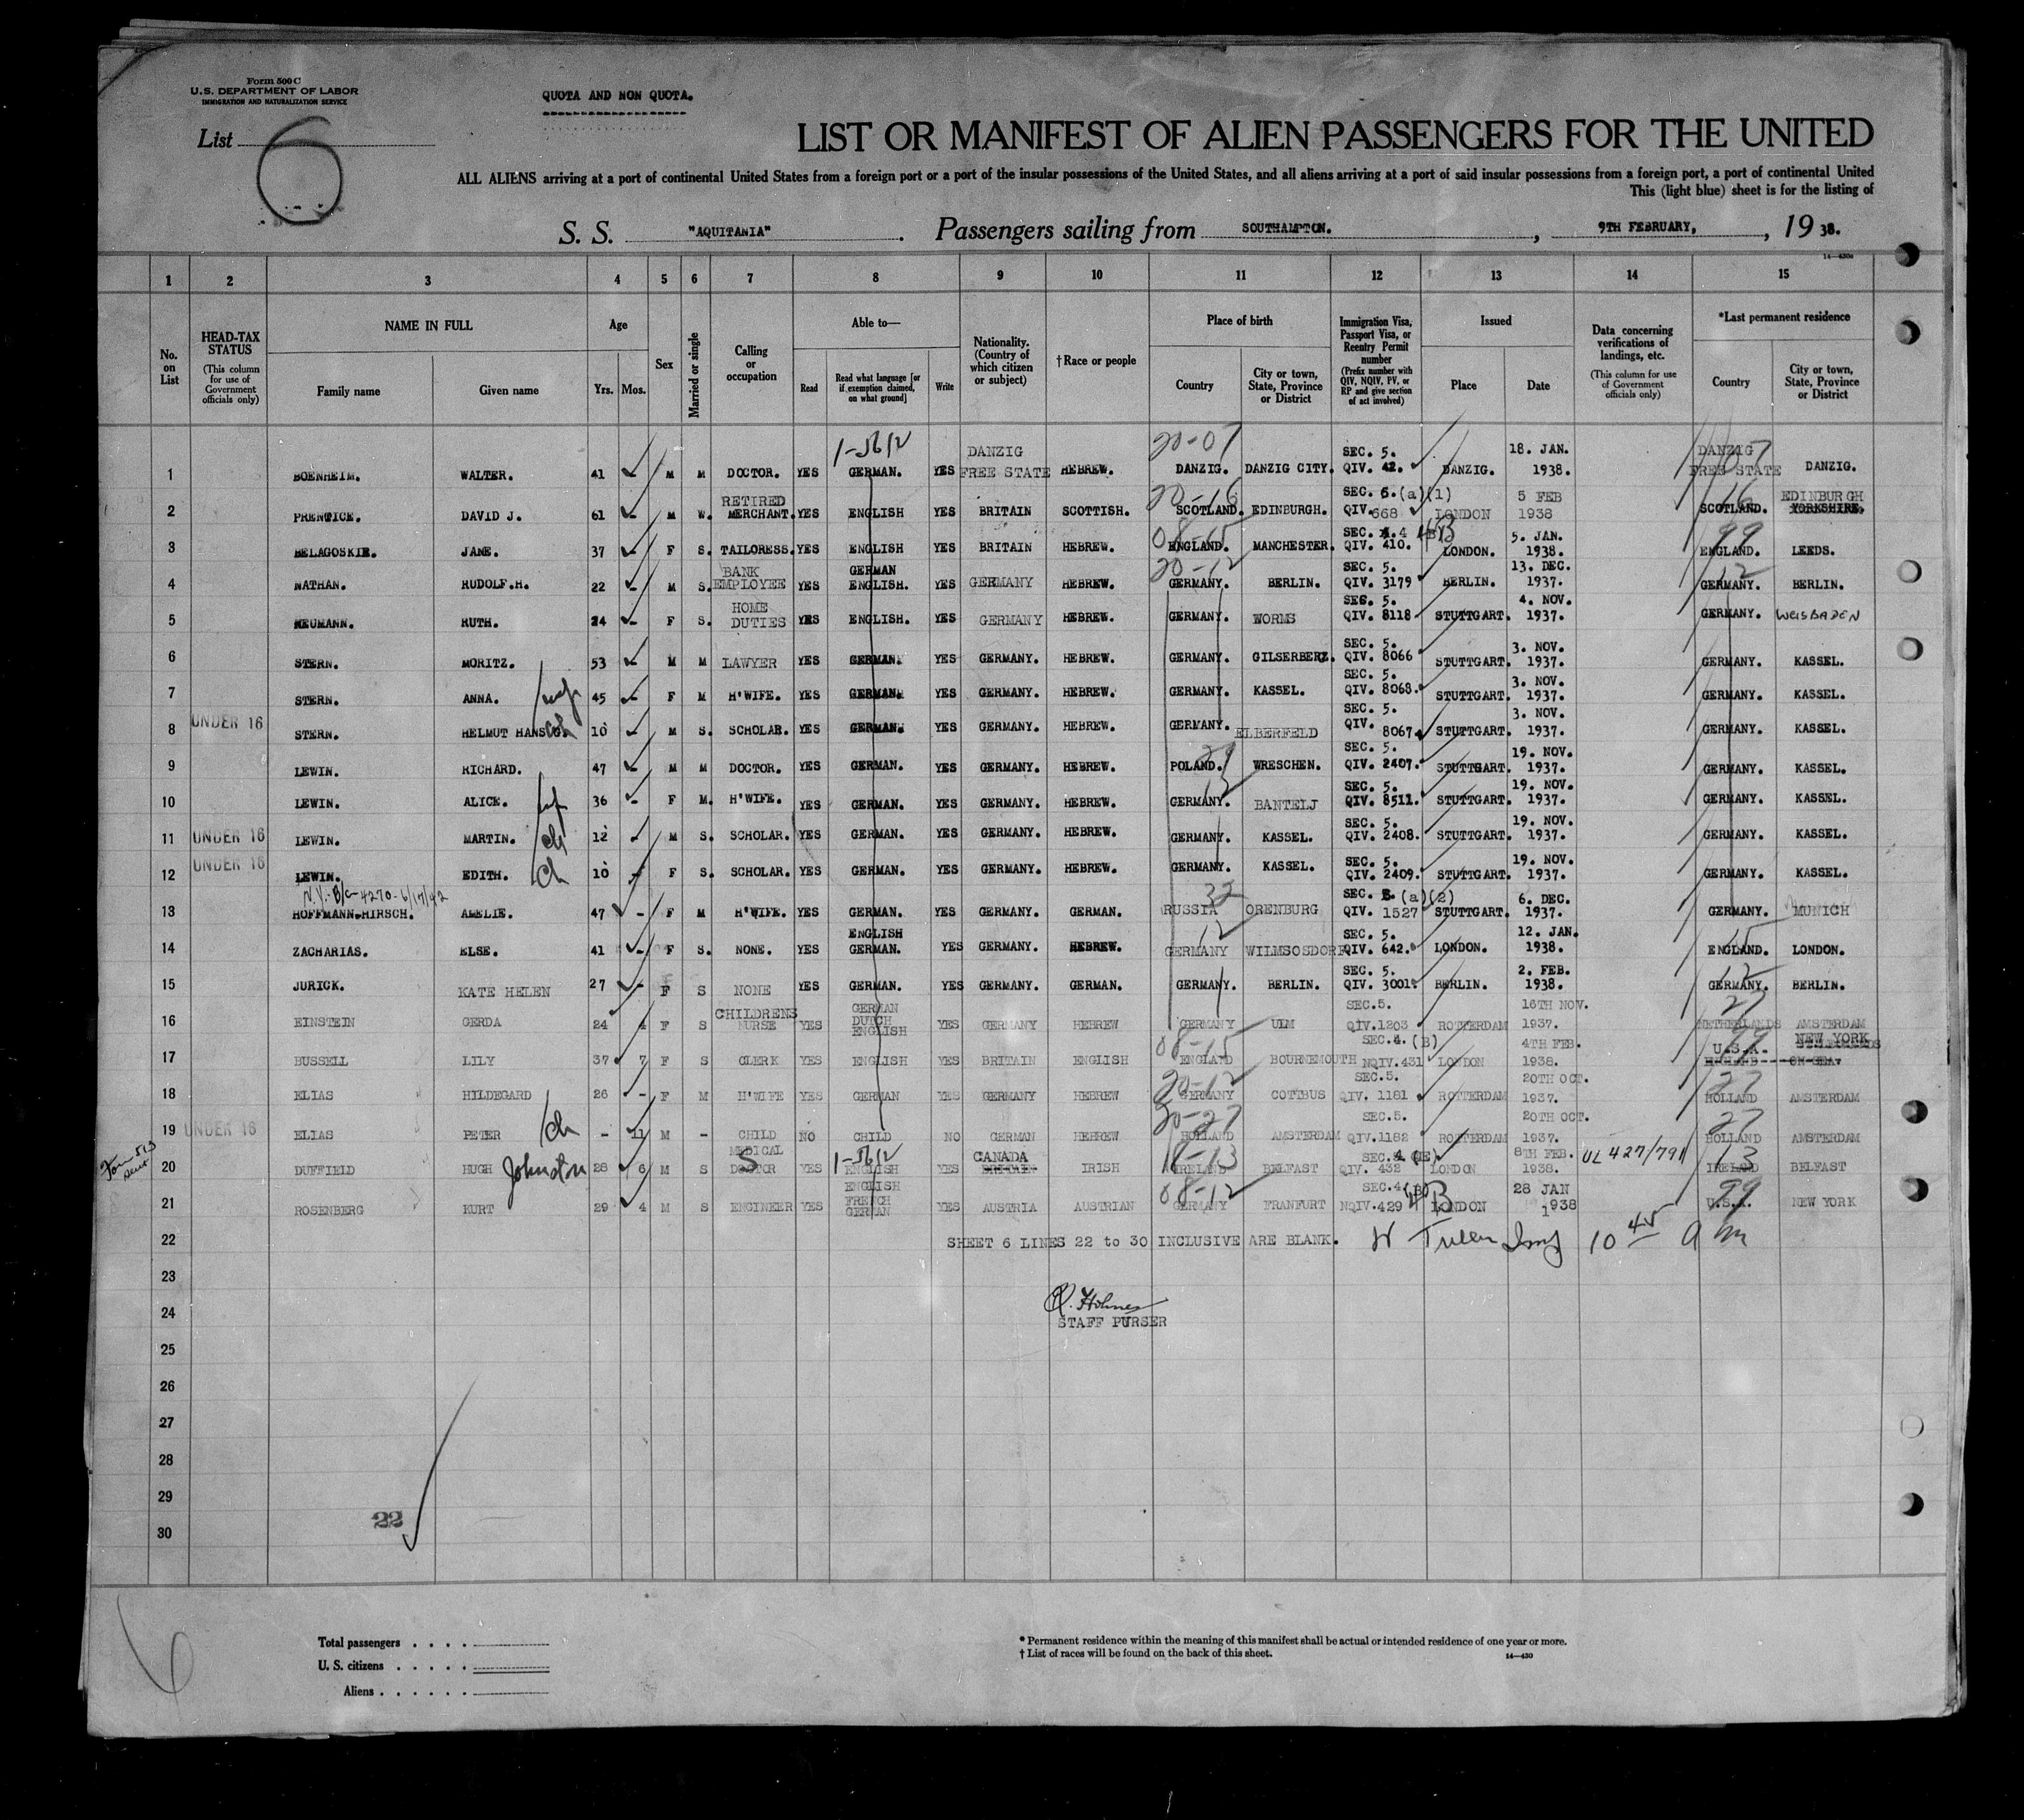 Form 500 C
U.S. DEPARTMENT OF LABOR
IMMIGRATION AND NATURALIZATION SERVICE
QUOTA AND NON QUOTA.
List 6
LIST OR MANIFEST OF ALIEN PASSENGERS FOR THE UNITED
ALL ALIENS arriving at a port of continental United States from a foreign port or a port of the insular possessions of the United States, and all aliens arriving at a port of said insular possessions from a foreign port, a port of continental United
This (light blue) sheet is for the listing of
S. S. "AQUITANIA". Passengers sailing from SOUTHAMPTON. , 9TH FEBRUARY, , 19 38.
1 2 3 4 5 6 7 8 9 10 11 12 13 14 15
No. on List
HEAD-TAX STATUS (This column for use of Government officials only)
NAME IN FULL
Family name Given name
Age
Yrs. Mos.
Sex
Married or single
Calling or occupation
Able to—
Read Read what language [or if exemption claimed, on what ground] Write
Nationality. (Country of which citizen or subject)
†Race or people
Place of birth
Country City or town, State, Province or District
Immigration Visa, Passport Visa, or Reentry Permit number (Prefix number with QIV, NQIV, PV, or RP and give section of act involved)
Issued
Place Date
Data concerning verifications of landings, etc. (This column for use of Government officials only)
*Last permanent residence
Country City or town, State, Province or District
1 BOENHEIM. WALTER. 41 M M DOCTOR. YES GERMAN. YES DANZIG FREE STATE HEBREW. 20-07 DANZIG. DANZIG CITY. SEC. 5. QIV. 42. DANZIG. 18. JAN. 1938. DANZIG FREE STATE DANZIG.
2 PRENTICE. DAVID J. 61 M W. RETIRED MERCHANT. YES ENGLISH YES BRITAIN SCOTTISH. 20-16 SCOTLAND. EDINBURGH. SEC. 6.(a)(1) QIV. 668 LONDON 5 FEB 1938 16 SCOTLAND. EDINBURGH YORKSHIRE.
3 BELAGOSKIE. JANE. 37 F S. TAILORESS. YES ENGLISH YES BRITAIN HEBREW. 08-15 ENGLAND. MANCHESTER. SEC. 4 QIV. 410. LONDON. 5. JAN. 1938. 99 ENGLAND. LEEDS.
4 NATHAN. RUDOLF.H. 22 M S. BANK EMPLOYEE YES GERMAN ENGLISH. YES GERMANY HEBREW. 20-12 GERMANY. BERLIN. SEC. 5. QIV. 3179 BERLIN. 13. DEC. 1937. 12 GERMANY. BERLIN.
5 NEUMANN. RUTH. 24 F S. HOME DUTIES YES ENGLISH. YES GERMANY HEBREW. GERMANY. WORMS SEC. 5. QIV. 8118 STUTTGART. 4. NOV. 1937. GERMANY. WeisBADEN
6 STERN. MORITZ. 53 M M LAWYER YES GERMAN. YES GERMANY. HEBREW. GERMANY. GILSERBERG. SEC. 5. QIV. 8066 STUTTGART. 3. NOV. 1937. GERMANY. KASSEL.
7 STERN. ANNA. wf 45 F M H'WIFE. YES GERMAN. YES GERMANY. HEBREW. GERMANY. KASSEL. SEC. 5. QIV. 8068. STUTTGART. 3. NOV. 1937. GERMANY. KASSEL.
8 UNDER 16 STERN. HELMUT HANS ch 10 M S. SCHOLAR. YES GERMAN. YES GERMANY. HEBREW. GERMANY. ELBERFELD SEC. 5. QIV. 8067. STUTTGART. 3. NOV. 1937. GERMANY. KASSEL.
9 LEWIN. RICHARD. 47 M M DOCTOR. YES GERMAN. YES GERMANY. HEBREW. POLAND. WRESCHEN. SEC. 5. QIV. 2407. STUTTGART. 19. NOV. 1937. GERMANY. KASSEL.
10 LEWIN. ALICE. wf 36 F M. H'WIFE. YES GERMAN. YES GERMANY. HEBREW. 12 GERMANY. BANTELJ SEC. 5. QIV. 8511. STUTTGART. 19. NOV. 1937. GERMANY. KASSEL.
11 UNDER 16 LEWIN. MARTIN. ch 12 M S. SCHOLAR. YES GERMAN. YES GERMANY. HEBREW. GERMANY. KASSEL. SEC. 5. QIV. 2408. STUTTGART. 19. NOV. 1937. GERMANY. KASSEL.
12 UNDER 16 LEWIN. EDITH. ch 10 F S. SCHOLAR. YES GERMAN. YES GERMANY. HEBREW. GERMANY. KASSEL. SEC. 5. QIV. 2409. STUTTGART. 19. NOV. 1937. GERMANY. KASSEL.
N.Y.-B/c-4270-6/17/42
13 HOFFMANN.HIRSCH. AMELIE. 47 - F M H'WIFE. YES GERMAN. YES GERMANY. GERMAN. 32 RUSSIA ORENBURG SEC. (a)(2) QIV. 1527 STUTTGART. 6. DEC. 1937. GERMANY. MUNICH
14 ZACHARIAS. ELSE. 41 - F S. NONE. YES ENGLISH GERMAN. YES GERMANY. HEBREW. 12 GERMANY WILMSOSDORF SEC. 5. QIV. 642. LONDON. 12. JAN. 1938. 15 ENGLAND. LONDON.
15 JURICK. KATE HELEN 27 - F S NONE YES GERMAN. YES GERMANY. GERMAN. GERMANY. BERLIN. SEC. 5. QIV. 3001. BERLIN. 2. FEB. 1938. 12 GERMANY. BERLIN.
16 EINSTEIN GERDA 24 4 F S CHILDRENS NURSE YES GERMAN DUTCH ENGLISH YES GERMANY HEBREW GERMANY ULM SEC.5. QIV.1203 ROTTERDAM 16TH NOV. 1937. 27 NETHERLANDS AMSTERDAM
17 BUSSELL LILY 37 7 F S CLERK YES ENGLISH YES BRITAIN ENGLISH 08-15 ENGLAND BOURNEMOUTH SEC.4.(B) NQIV.431 LONDON 4TH FEB. 1938. 99 U.S.A. NEW YORK
18 ELIAS HILDEGARD 26 - F M H'WIFE YES GERMAN YES GERMANY HEBREW 20-12 GERMANY COTTBUS SEC.5. QIV. 1181 ROTTERDAM 20TH OCT. 1937. 27 HOLLAND AMSTERDAM
19 UNDER 16 ELIAS PETER ch - 11 M - CHILD NO CHILD NO GERMAN HEBREW 20-27 HOLLAND AMSTERDAM SEC.5. QIV.1182 ROTTERDAM 20TH OCT. 1937. 27 HOLLAND AMSTERDAM
Form 513
20 DUFFIELD HUGH Johnston 28 6 M S MEDICAL DOCTOR YES ENGLISH YES CANADA BRITAIN IRISH IRELAND BELFAST SEC.4 QIV. 432 LONDON 8TH FEB. 1938. UL 427/791 13 IRELAND BELFAST
21 ROSENBERG KURT 29 4 M S ENGINEER YES ENGLISH FRENCH GERMAN YES AUSTRIA AUSTRIAN 08-12 GERMANY FRANFURT SEC.4 NQIV.429 LONDON 28 JAN 1938 99 U.S.A. NEW YORK
22 SHEET 6 LINES 22 to 30 INCLUSIVE ARE BLANK. 10 45 a m
23
24 Holmes
STAFF PURSER
25
26
27
28
29
22
30
6
Total passengers . . . .
U. S. citizens . . . . .
Aliens . . . . . .
* Permanent residence within the meaning of this manifest shall be actual or intended residence of one year or more.
† List of races will be found on the back of this sheet. 14—430